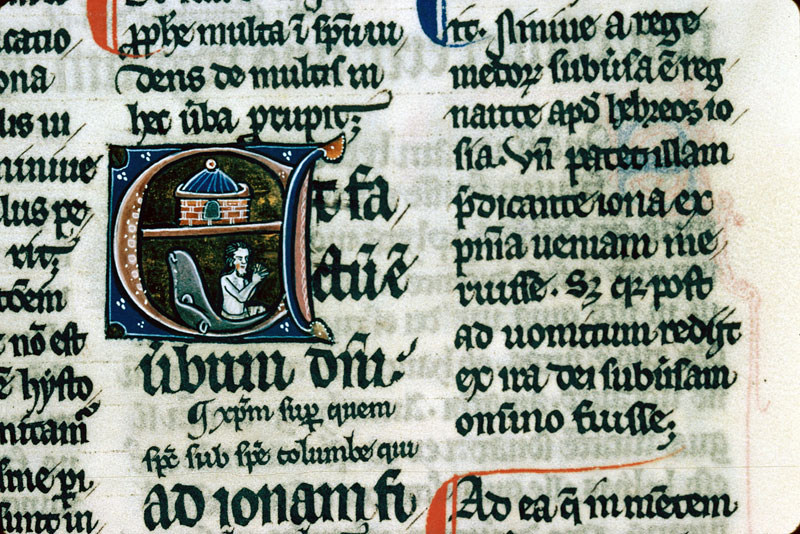 catio
ona
lis in
niniue
lus pe
rit;
toem
no est
e hysto
nitam
sme pi
sunt in
pphe multa i spu ui
dens de multis in
hec uba prupit;
Et fa
ctu e
ubum dni.
q xpm sup quem
spc sub spe columbe qui
ad ionam fi
it. Niniue a rege
medoꝝ subuisa e reg
nante apd hebreos io
sia. Vn patet illam
pdicante iona ex
pnia ueniam me
ruisse. Sz qz post
ad uomitum rediit
ex ira dei subuisam
onsino fuisse;
Ad ea q in mentem